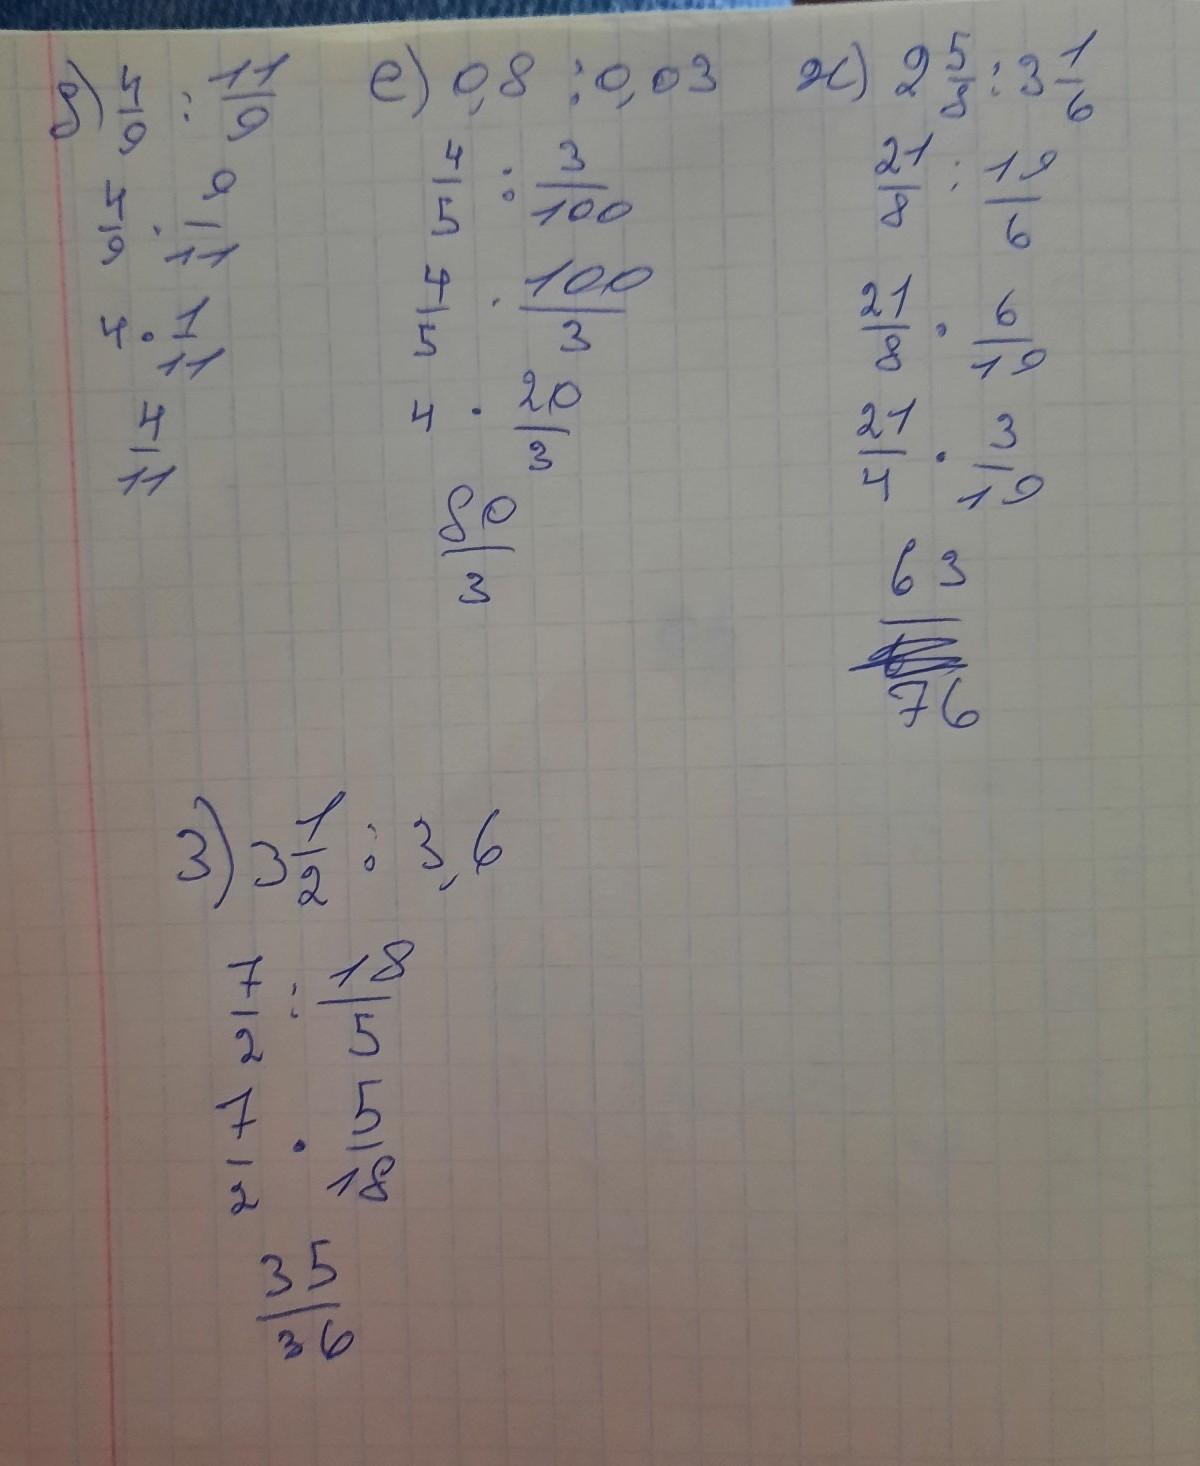 д) 4/9 : 11/9
4/9 · 9/11
4 · 1/11
4/11
е) 0,8 : 0,03
4/5 : 3/100
4/5 · 100/3
4 · 20/3
80/3
ж) 2 5/8 : 3 1/6
21/8 : 19/6
21/8 · 6/19
21/4 · 3/19
63/76
з) 3 1/2 : 3,6
7/2 : 18/5
7/2 · 5/18
35/36